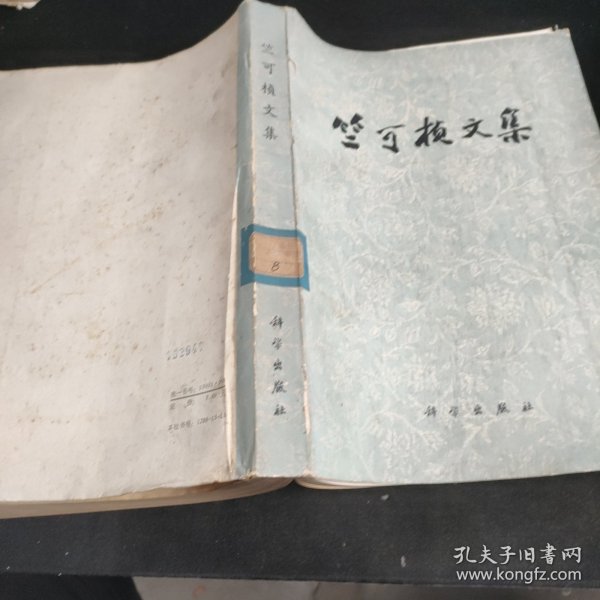 竺可桢文集
科学出版社
竺可桢文集
8
科学出版社
孔夫子旧书网
www.kongfz.com